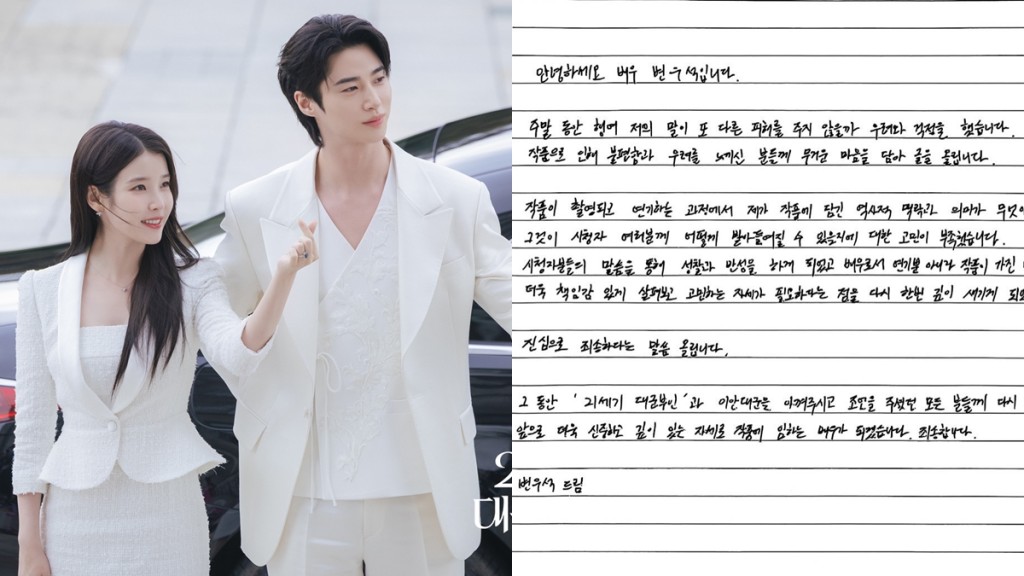 2
대
안녕하세요 배우 변우석입니다.
주말 동안 혹여 저의 말이 또 다른 피해를 주지 않을까 우려와 걱정을 했습니다.
작품으로 인해 불편함과 우려를 느끼신 분들께 무거운 마음을 담아 글을 올립니다.
작품이 촬영되고 연기하는 과정에서 제가 작품에 담긴 역사적 맥락과 의미가 무엇
그것이 시청자 여러분께 어떻게 받아들여질 수 있을지에 대한 고민이 부족했습니다.
시청자분들의 말씀을 통해 성찰과 반성을 하게 되었고 배우로서 연기뿐 아니라 작품이 가진
더욱 책임감 있게 살펴보고 고민하는 자세가 필요하다는 점을 다시 한번 깊이 새기게 되
진심으로 죄송하다는 말씀 올립니다.
그 동안 '21세기 대군부인'과 이안대군을 아껴주시고 조언을 주셨던 모든 분들께 다시
앞으로 더욱 신중하고 깊이 있는 자세로 작품에 임하는 배우가 되겠습니다. 죄송합니다.
변우석 드림